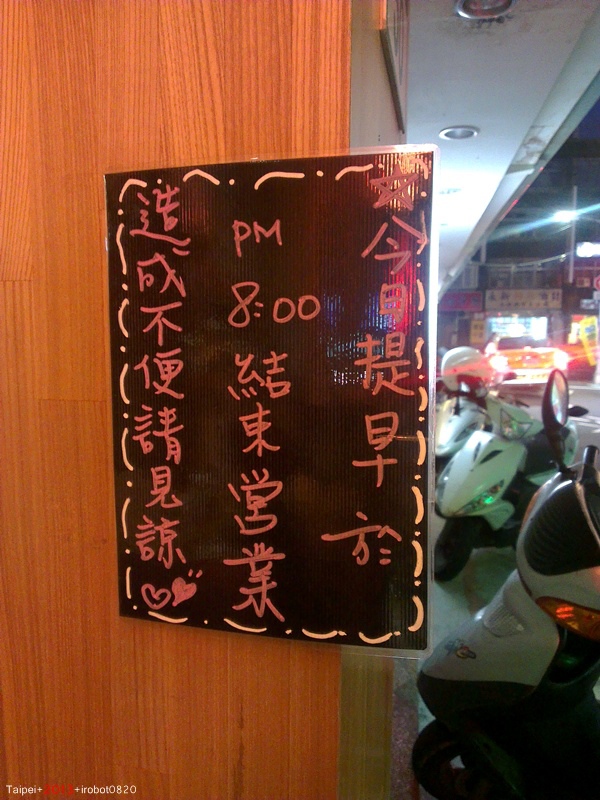 ☆今日提早於
PM 8:00 結束營業
造成不便請見諒♡♥
Taipei+
+irobot0820